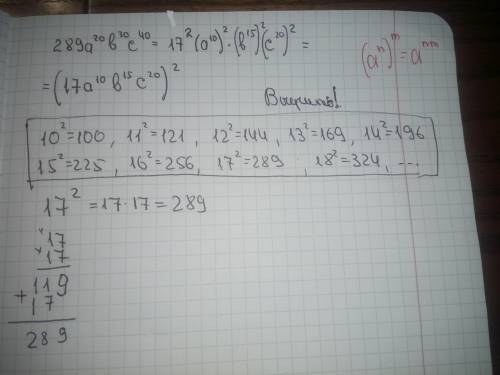 289a²⁰в³⁰c⁴⁰ = 17²(a¹⁰)²·(в¹⁵)²(c²⁰)² =
= (17a¹⁰в¹⁵c²⁰)²
(aⁿ)ᵐ = aⁿᵐ
Выучить!
10²=100, 11²=121, 12²=144, 13²=169, 14²=196
15²=225, 16²=256, 17²=289, 18²=324, ...
17² = 17·17 = 289
17
17
119
+
17
289